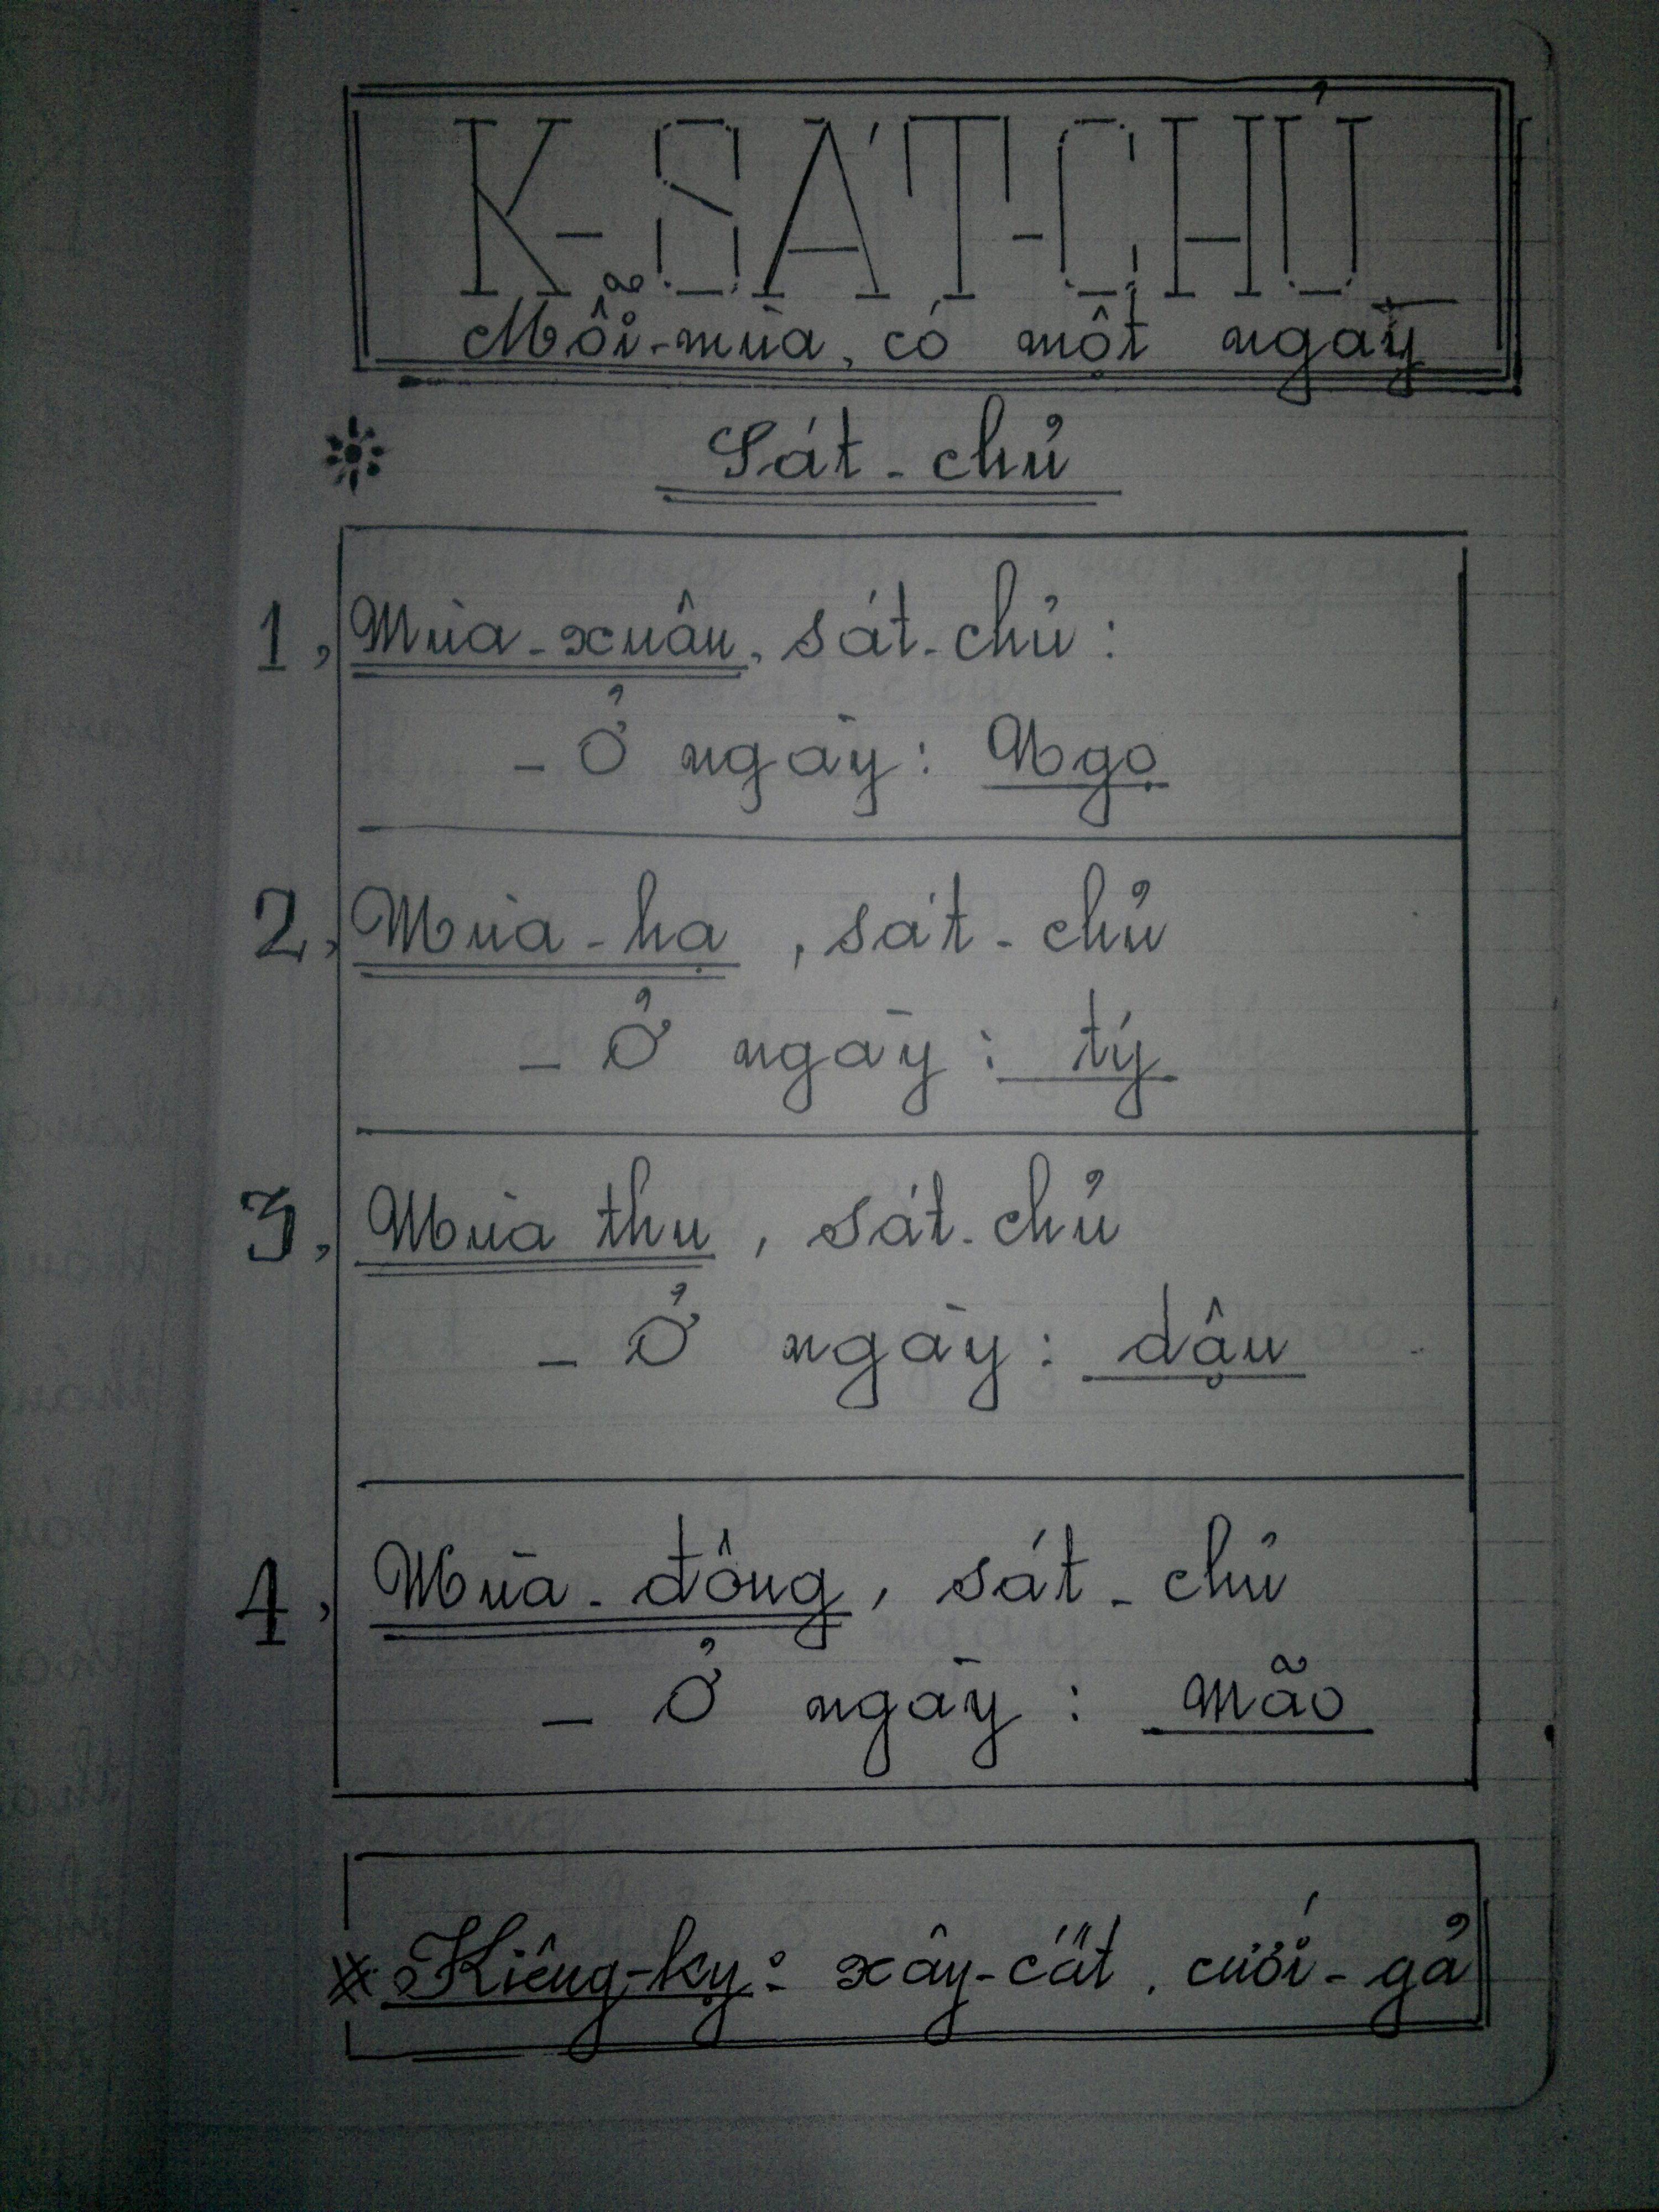 K-SÁT-CHỦ
Mỗi-mùa, có một ngày
Sát-chủ
1, Mùa-xuân, sát-chủ:
- Ở ngày: Ngọ
2, Mùa-hạ, sát-chủ
- Ở ngày: tý
3, Mùa thu, sát-chủ
- Ở ngày: dậu
4, Mùa-đông, sát-chủ
- Ở ngày: mão
* Kiêng-kỵ: xây-cất, cưới-gả